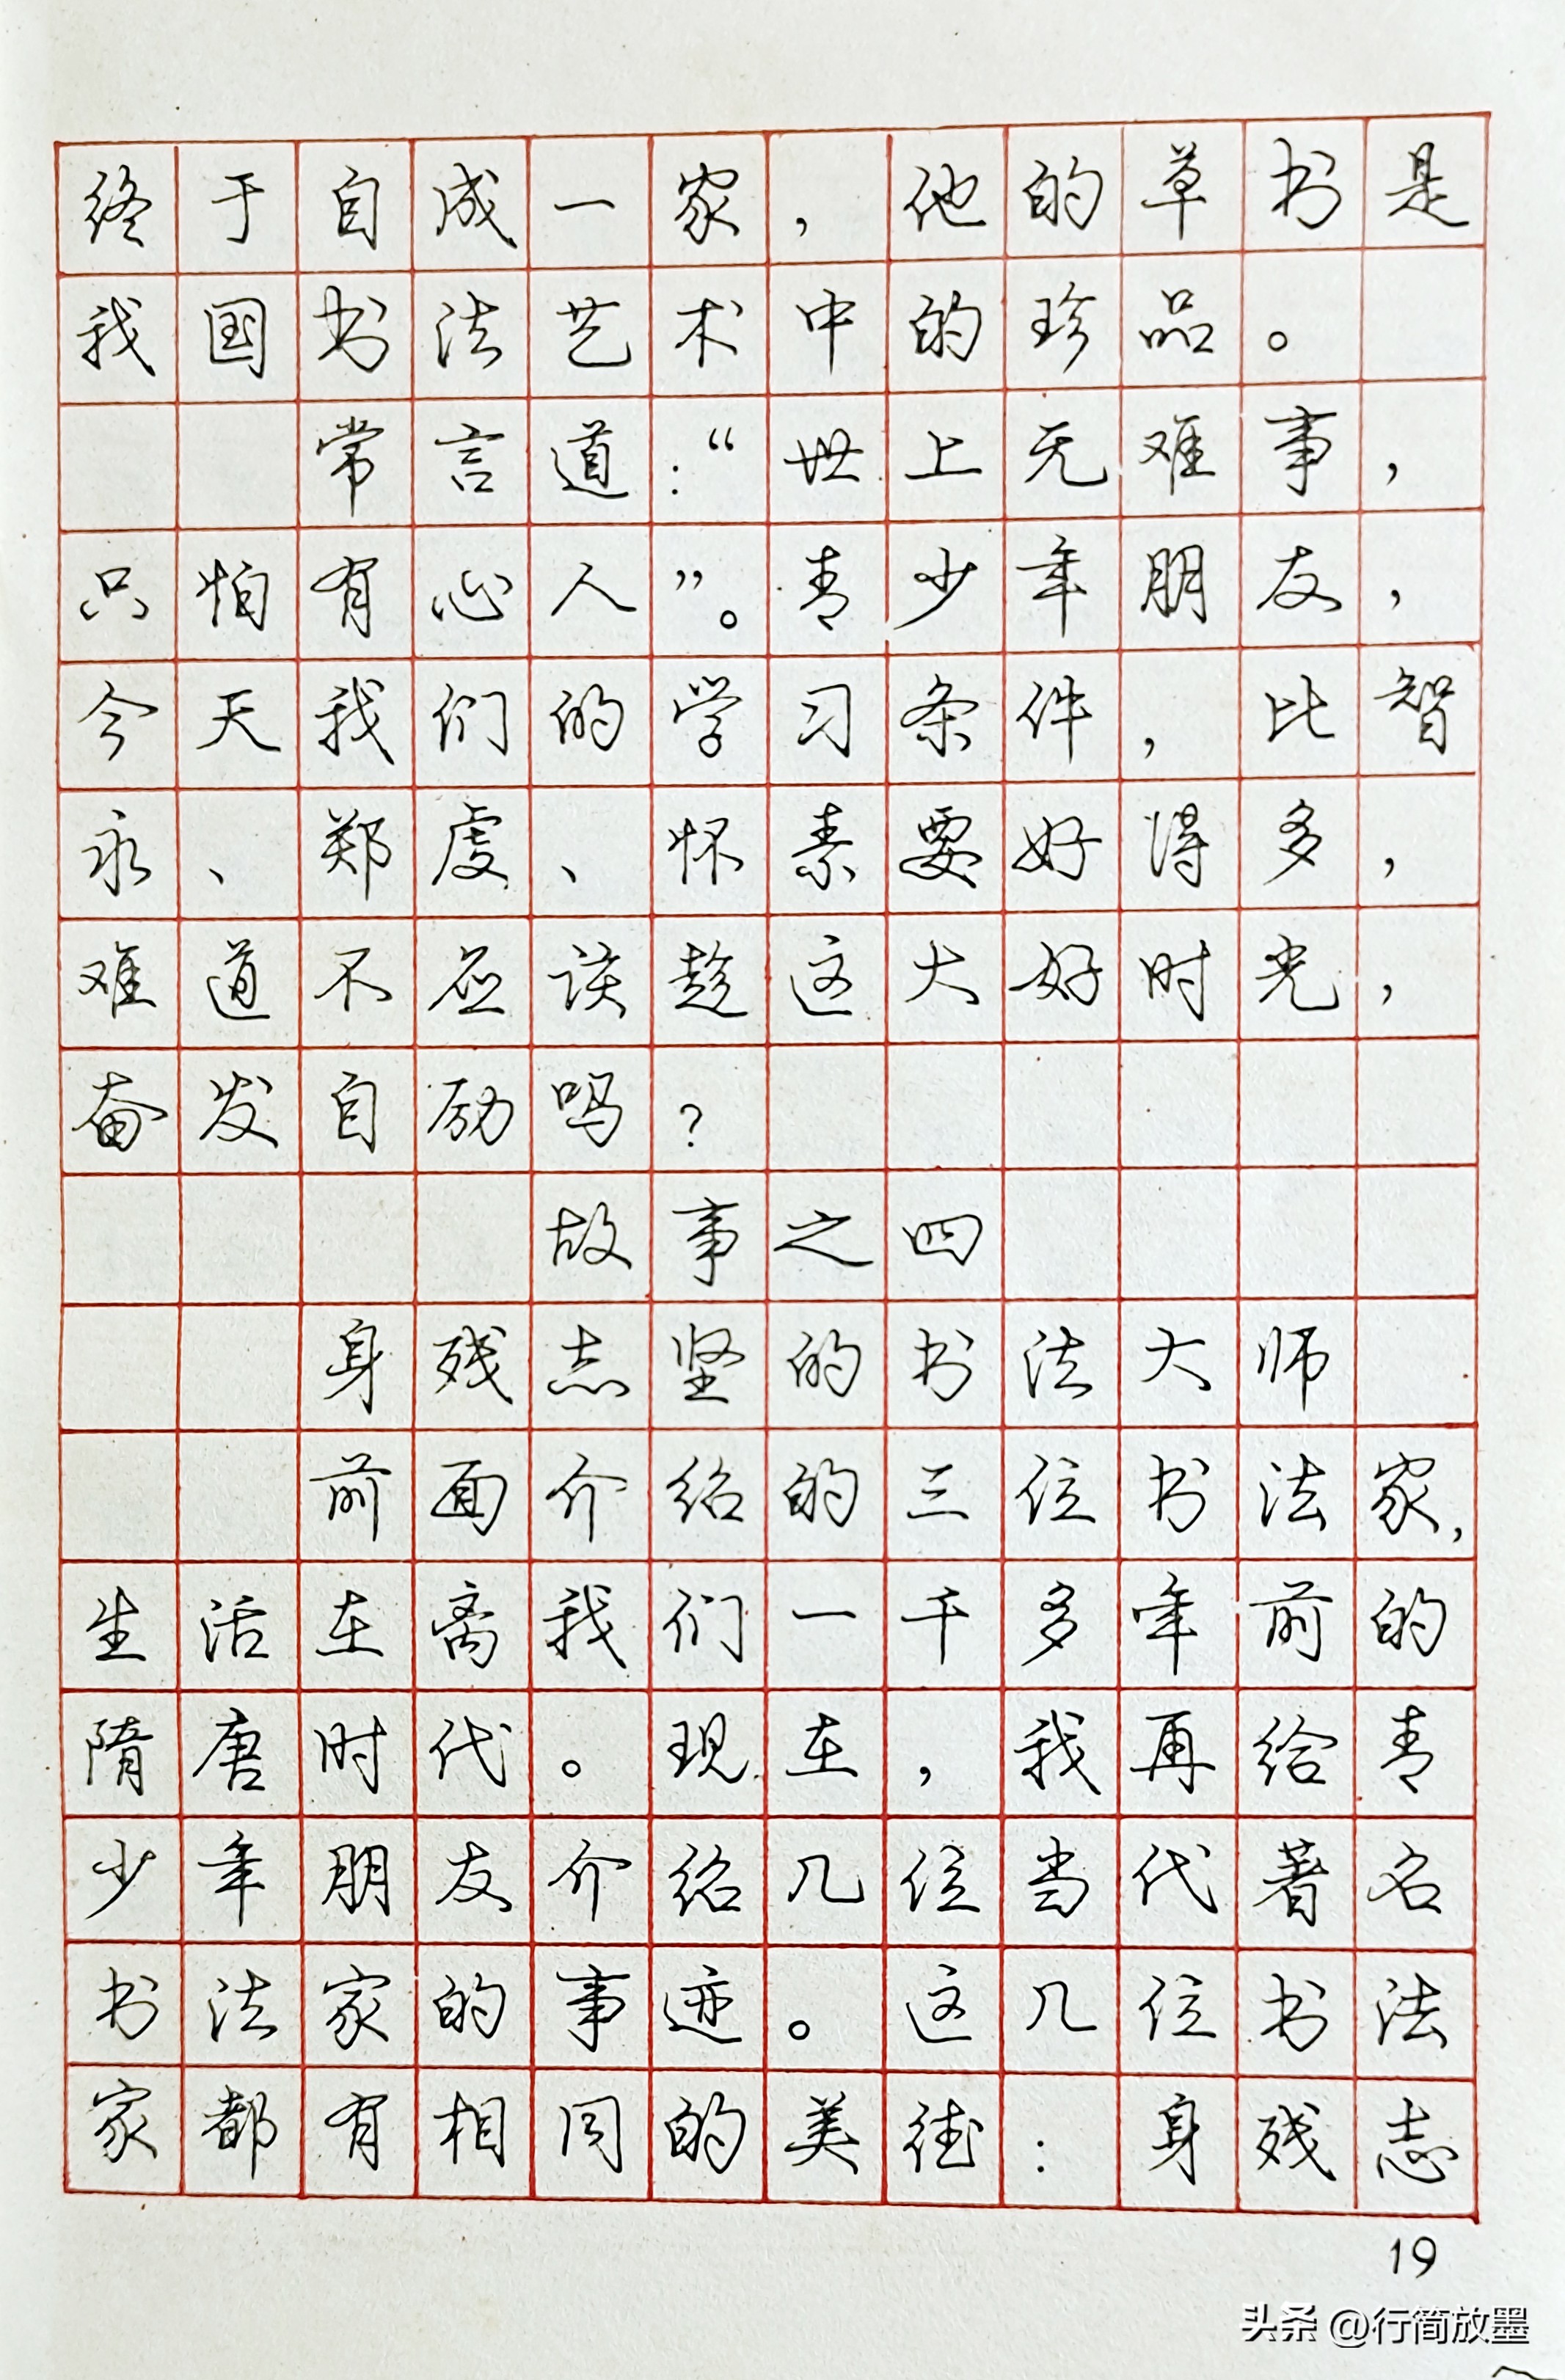 终于自成一家，他的草书是
我国书法艺术中的珍品。
常言道：“世上无难事，
只怕有心人”。青少年朋友，
今天我们的学习条件，比智
永、郑虔、怀素要好得多，
难道不应该趁这大好时光，
奋发自励吗？
故事之四
身残志坚的书法大师
前面介绍的三位书法家，
生活在离我们一千多年前的
隋唐时代。现在，我再给青
少年朋友介绍几位当代著名
书法家的事迹。这几位书法
家都有相同的美德：身残志
19
头条 @行简放墨